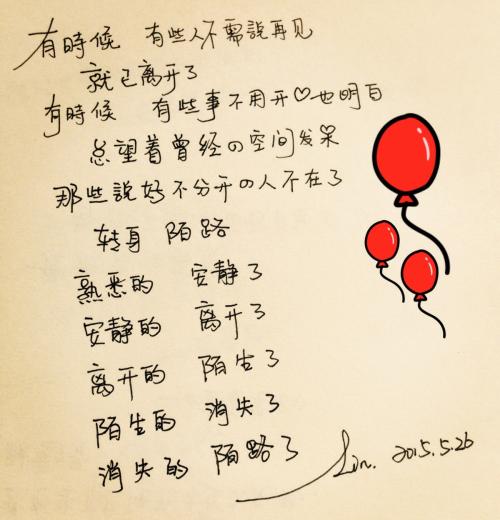 有時候　有些人不需說再見
就已离开了
有時候　有些事不用开♡也明白
总望着曾经の空间发呆
那些說好不分开の人不在了
转身　陌路
熟悉的　安静了
安静的　离开了
离开的　陌生了
陌生的　消失了
消失的　陌路了
Lin. 2015.5.26